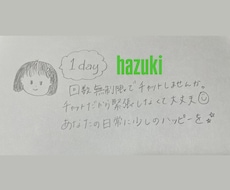 1 day
hazuki
回数無制限でチャットしませんか。
チャットだから緊張しなくて大丈夫
あなたの日常に少しのハッピーを